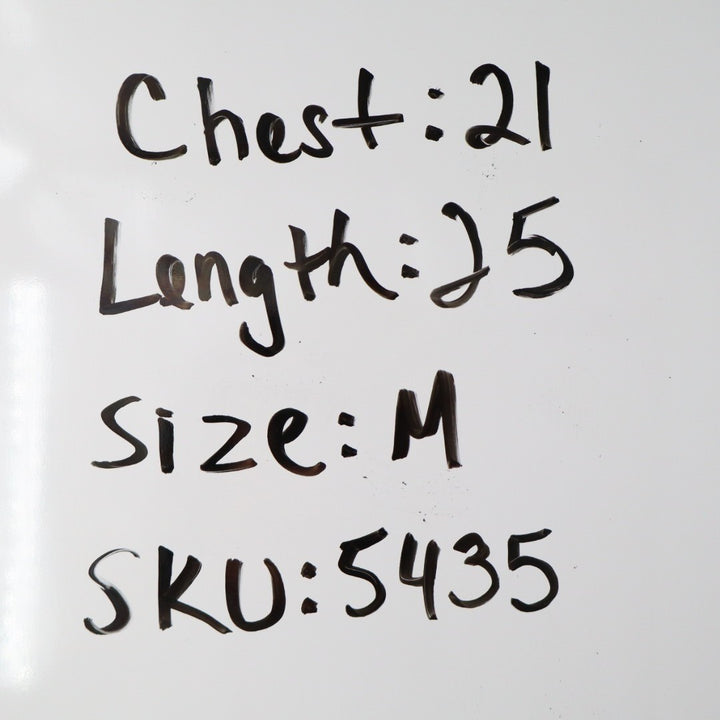 Chest:21
Length:25
Size:M
SKU:5435